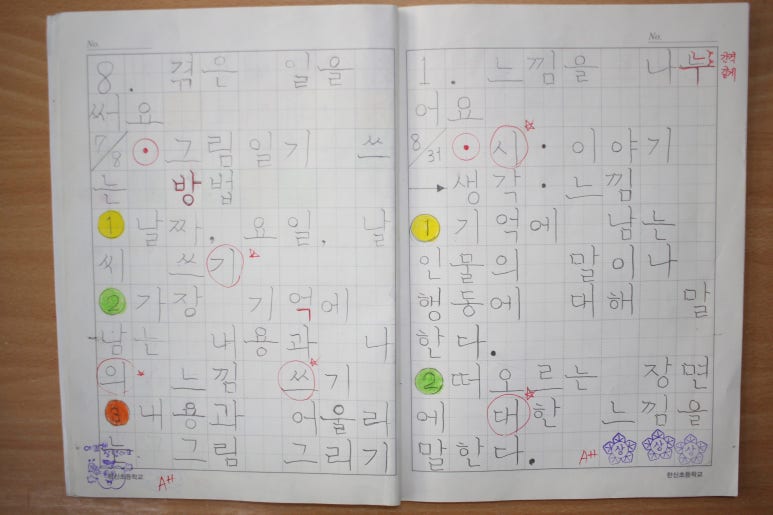 No.
8. 겪은 일을
써요
7/8 그림일기 쓰
는 방법
1 날짜, 요일, 날
씨 쓰기
2 가장 기억에
남는 내용과 나
의 느낌 쓰기
3 내용과 어울리
는 그림 그리기
한신초등학교
A++
No.
1. 느낌을 나누
어요
8/31 시·이야기
→ 생각·느낌
1 기억에 남는
인물의 말이나
행동에 대해 말
한다.
2 떠오르는 장면
에 대한 느낌을
말한다. A++ 상 상 상
한신초등학교